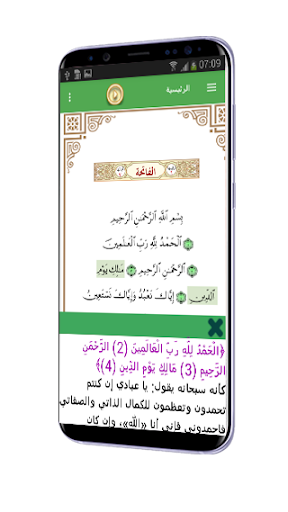 07:09
الرئيسية
الفاتحة
بِسْمِ اللَّهِ الرَّحْمَٰنِ الرَّحِيمِ
الْحَمْدُ لِلَّهِ رَبِّ الْعَالَمِينَ
الرَّحْمَٰنِ الرَّحِيمِ مَالِكِ يَوْمِ
الدِّينِ إِيَّاكَ نَعْبُدُ وَإِيَّاكَ نَسْتَعِينُ
﴿الْحَمْدُ لِلَّهِ رَبِّ الْعَالَمِينَ (2) الرَّحْمَنِ
الرَّحِيمِ (3) مَالِكِ يَوْمِ الدِّينِ (4)﴾
كأنه سبحانه يقول: يا عبادي إن كنتم
تحمدون وتعظمون للكمال الذاتي والصفاتي
فاحمدوني فإني أنا «الله»، وإن كان